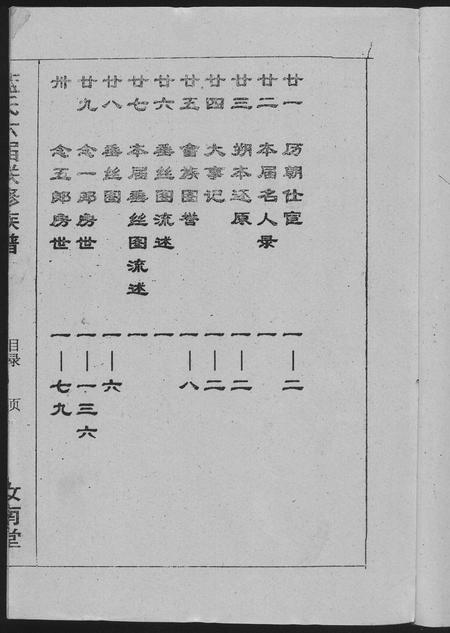 廿一 历朝仕宦 一—二
廿二 本届名人录 一—二
廿三 朔本还原 一—二
廿四 大事记 一—二
廿五 會族图誉 一—八
廿六 垂丝图流述 一
廿七 本届垂丝图流述 一
廿八 垂丝图 一—六
廿九 念一郎房世 一—一三六
卅 念五郎房世 一—七九
氏六届联修族谱
目录 页
汝南堂